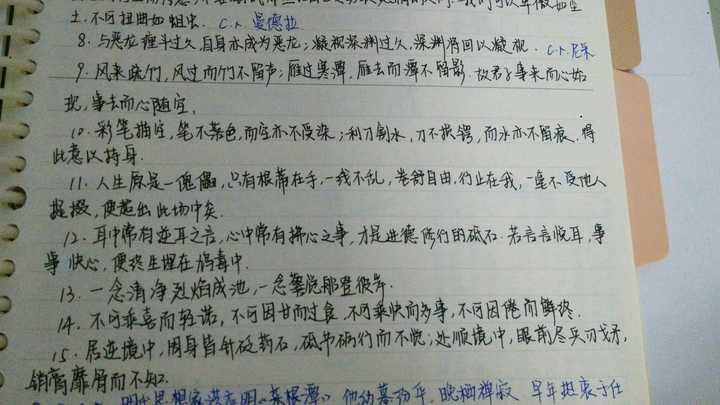 土，不可扭曲如蛆虫. C.r. 曼德拉
8. 与恶龙缠斗过久，自身亦成为恶龙；凝视深渊过久，深渊将回以凝视. C.r. 尼采
9. 风来疏竹，风过而竹不留声；雁过寒潭，雁去而潭不留影. 故君子事来而心始
现，事去而心随空.
10. 彩笔描空，笔不落色，而空亦不受染；利刀割水，刀不损锷，而水亦不留痕. 得
此意以持身.
11. 人生原是一傀儡，只有根蒂在手，一线不乱，卷舒自由，行止在我，一毫不受他人
提掇，便超出此场中矣.
12. 耳中常有逆耳之言，心中常有拂心之事，才是进德修行的砥石. 若言言悦耳，事
事快心，便终生埋在鸩毒中.
13. 一念清净烈焰成池，一念警觉那登彼岸.
14. 不可乘喜而轻诺，不可因甘而过食，不可乘快而多事，不可因倦而鲜终.
15. 居逆境中，周身皆针砭药石，砥节砺行而不觉；处顺境中，眼前尽兵刃戈矛，
销膏靡骨而不知.
明代思想家洪应明《菜根谭》 他幼慕功名，晚栖禅寂 早年热衷于仕